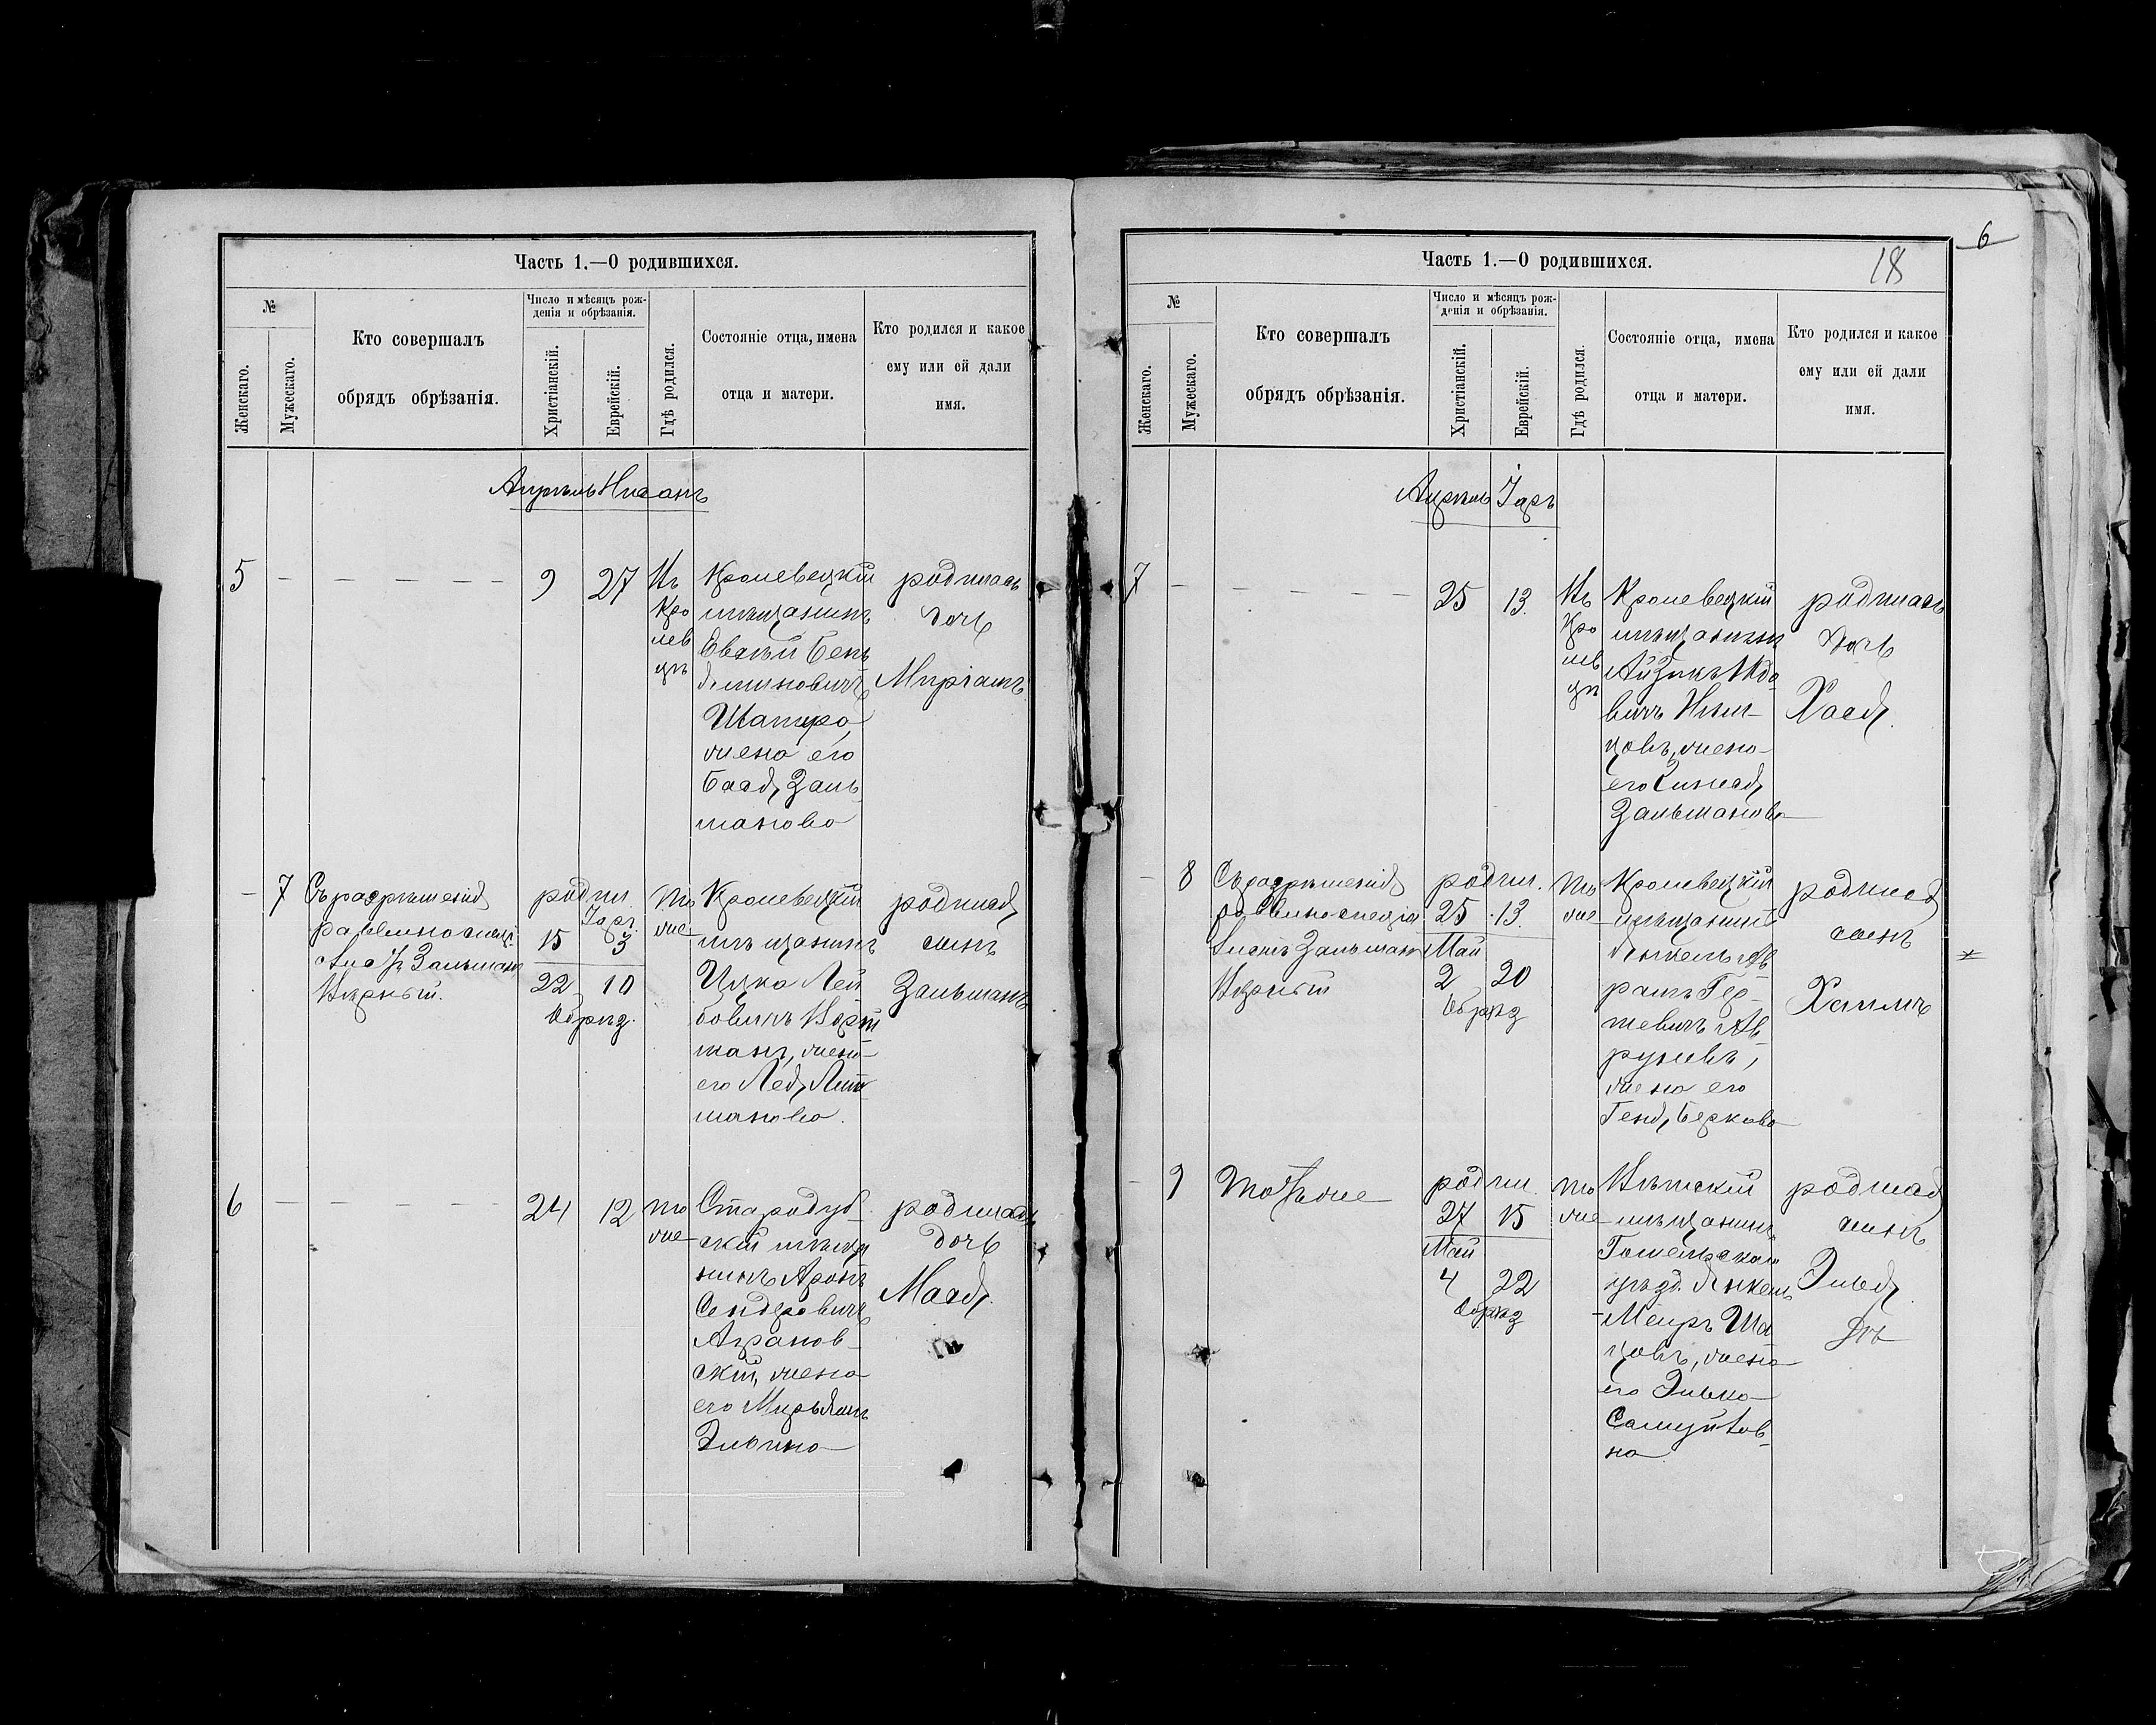 Часть 1.—О родившихся.
№
Женскаго.
Мужескаго.
Кто совершалъ
обрядъ обрѣзанія.
Число и мѣсяцъ рож-
денія и обрѣзанія.
Христіанскій.
Еврейскій.
Гдѣ родился.
Состояніе отца, имена
отца и матери.
Кто родился и какое
ему или ей дали
имя.
Апрѣль Нисанъ
5
9
27
Въ
Кро
лев
цѣ
Кролевецкій
мѣщанинъ
Евсѣй Бень
яминовичъ
Шапиро,
жена его
Бася Заль
манова
родилась
дочь
Миріамъ
7
Съ разрѣшенія
Зальманъ
Вѣрный.
родил.
Іаръ
15 3
22 10
Обрѣз.
То
же
Кролевецкій
мѣщанинъ
Ицка Лей
бовичъ
манъ, жена
его Лея
манова.
родился
сынъ
Зальманъ
6
24
12
То
же
Стародуб
скій мѣща
нинъ Аронъ
Сендеровичъ
Агранов
скій, жена
его Мирьямъ
Элькина
родилась
дочь
Мася.
6
Часть 1.—О родившихся.
18
№
Женскаго.
Мужескаго.
Кто совершалъ
обрядъ обрѣзанія.
Число и мѣсяцъ рож-
денія и обрѣзанія.
Христіанскій.
Еврейскій.
Гдѣ родился.
Состояніе отца, имена
отца и матери.
Кто родился и какое
ему или ей дали
имя.
Апрѣль Іаръ
7
25
13.
Въ
Кро
лев
цѣ
Кролевецкій
мѣщанинъ
Айзикъ
вичъ
жена
его
Зальманова
родилась
дочь
Хася.
8
Съ разрѣшенія
Зальманъ
Вѣрный
родил.
25 13.
Май
2 20
Обрѣз
То
же
Кролевецкій
мѣщанинъ
Янкель Ав
рамъ Гер
шевичъ Ав
руневъ,
жена его
Геня Беркова
родился
сынъ
Хаимъ
9
Тотъ же
родил.
27 15
Май
4 22
Обрѣз
То
же
мѣщанинъ
Гомельскаго
уѣзд. Янкель
Меиръ Ша
цовъ, жена
его Элька
Самуйлов
на
родился
сынъ
Элья